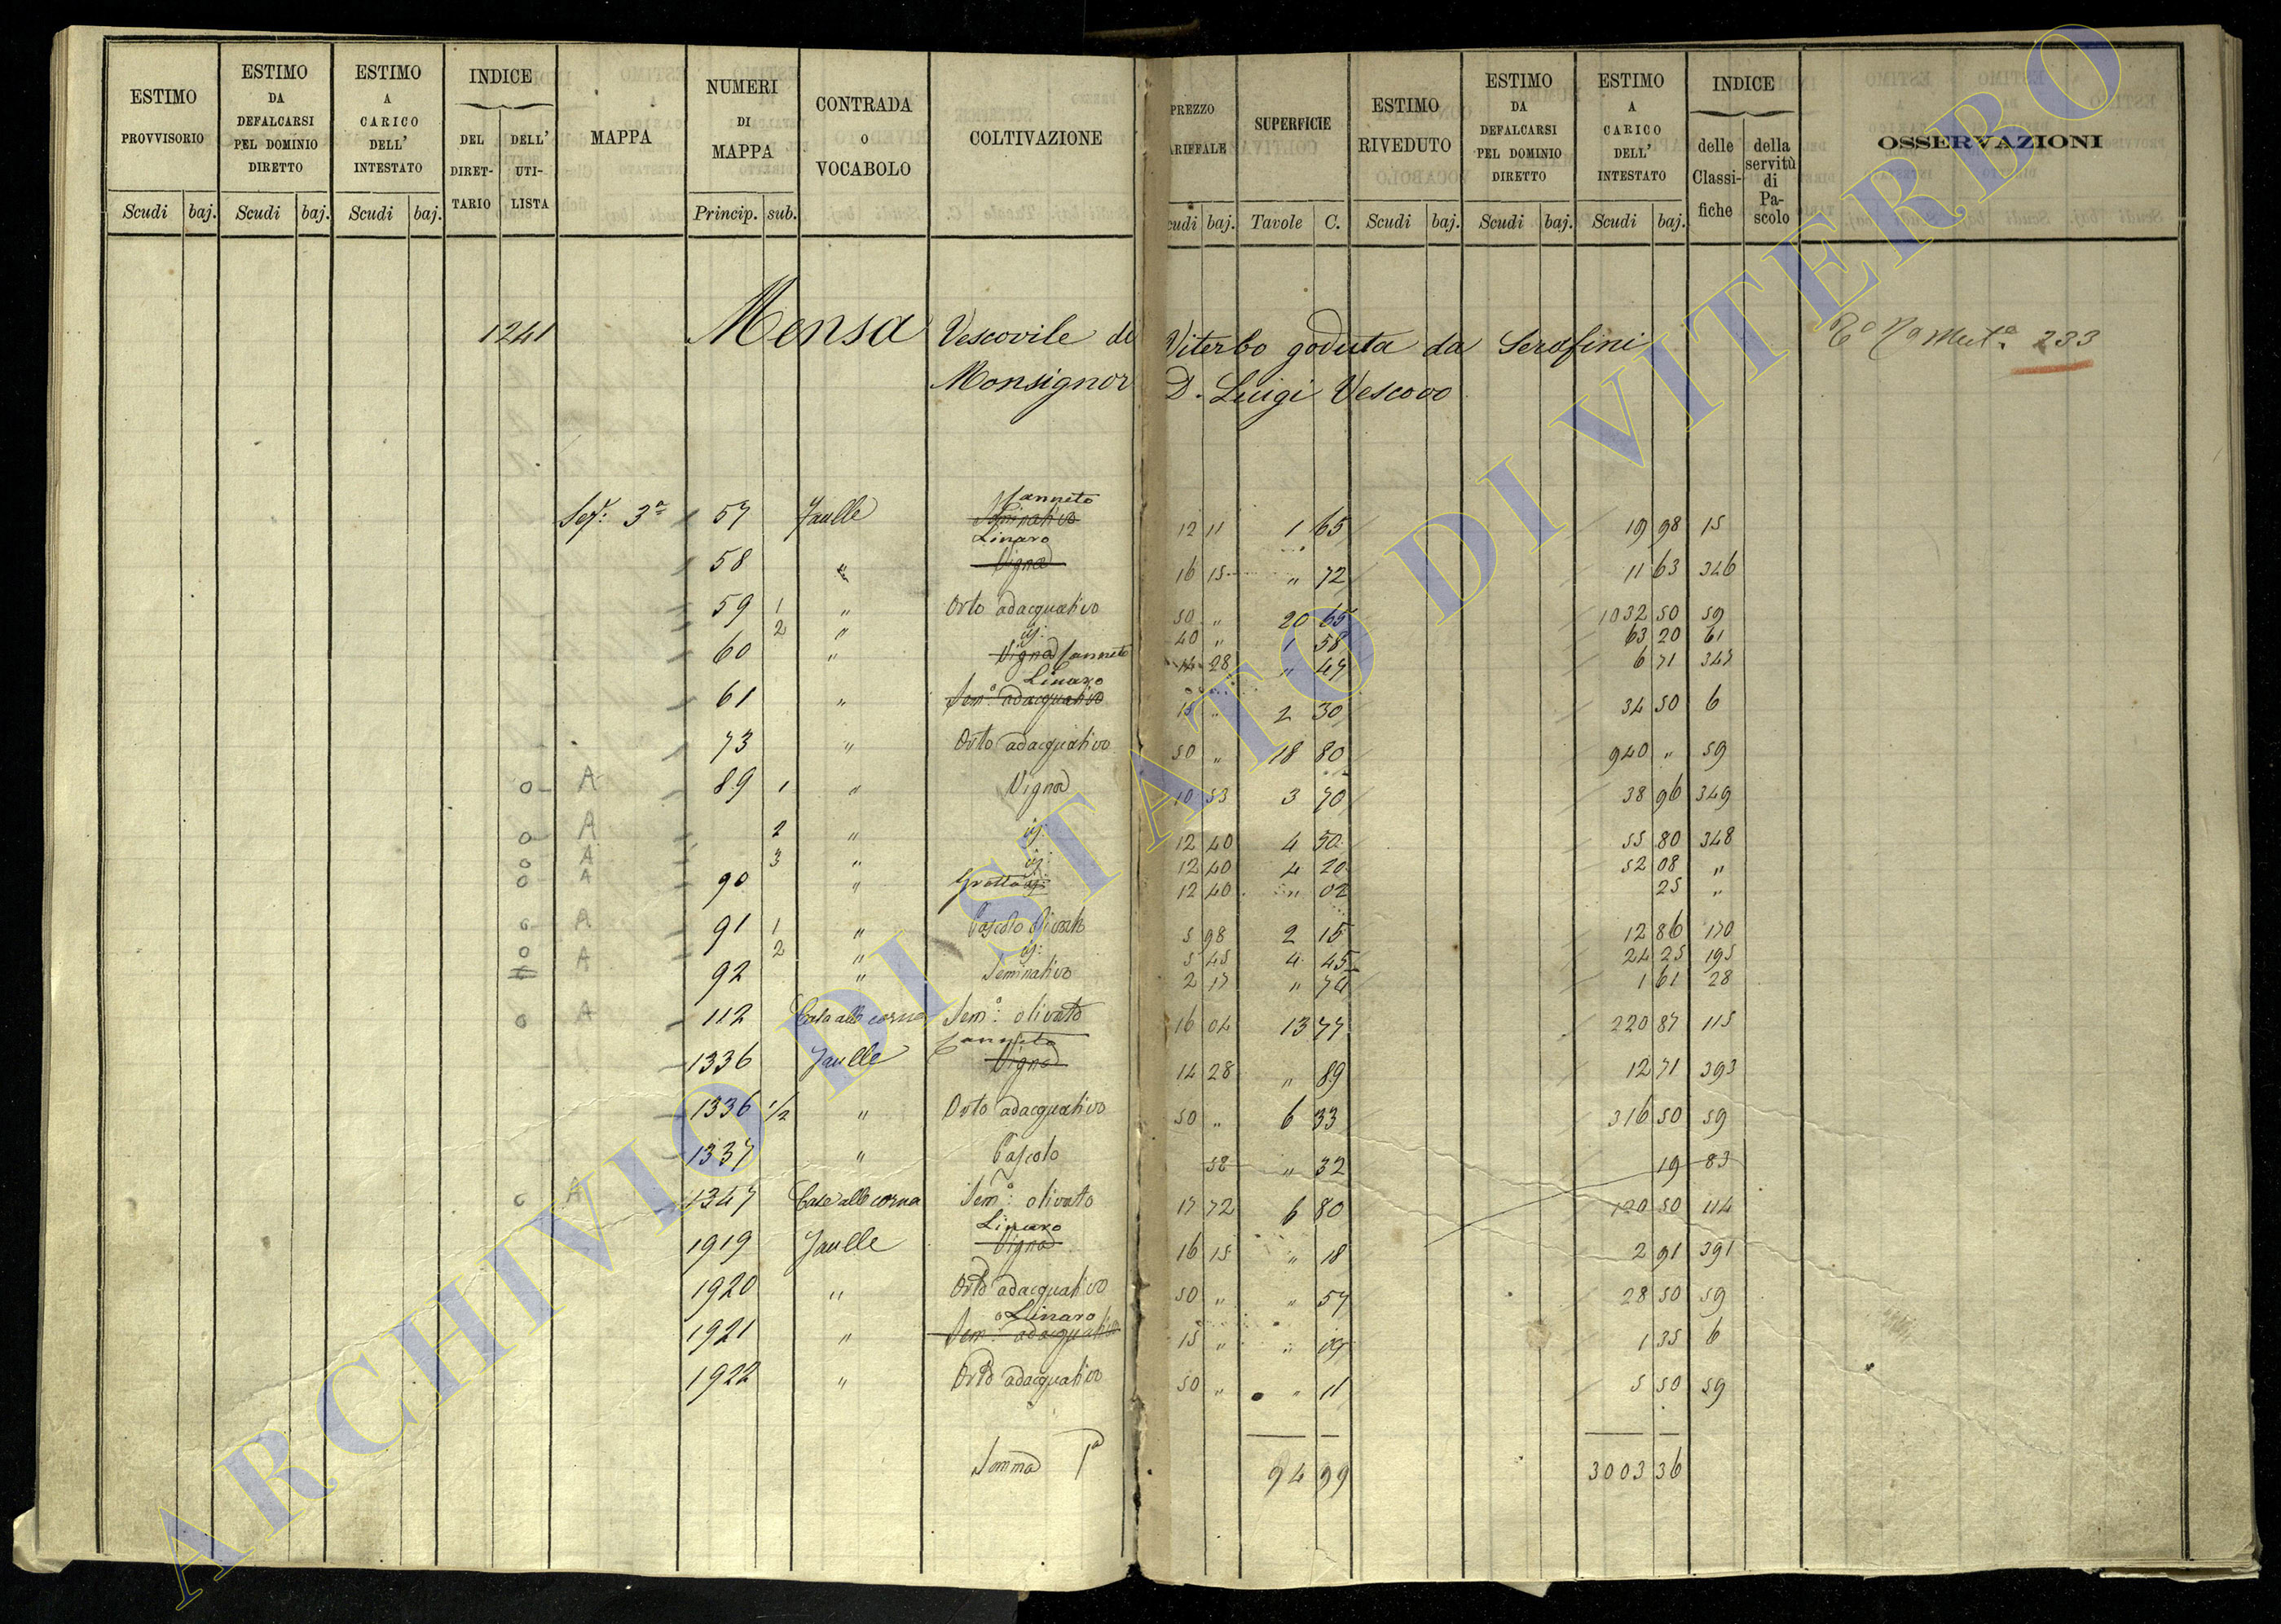 ESTIMO PROVVISORIO | ESTIMO DA DEFALCARSI PEL DOMINIO DIRETTO | ESTIMO A CARICO DELL' INTESTATO | INDICE DEL DIRET-TARIO | DELL' UTI-LISTA | MAPPA | NUMERI DI MAPPA | CONTRADA o VOCABOLO | COLTIVAZIONE | PREZZO ARIFFALE | SUPERFICIE | ESTIMO RIVEDUTO | ESTIMO DA DEFALCARSI PEL DOMINIO DIRETTO | ESTIMO A CARICO DELL' INTESTATO | INDICE delle Classi-fiche | della servitù di Pa-scolo | OSSERVAZIONI
Scudi baj. Scudi baj. Scudi baj. Princip. sub. cudi baj. Tavole C. Scudi baj. Scudi baj. Scudi baj.
1241 Mensa Vescovile di Viterbo goduta da Serafini 233
Monsignor D. Luigi Vescovo
Canneto
Sez: 3ª 57 Jaulle Seminativo 12 11 1 65 19 98 15
Linaro
58 " Vigna 16 15 " 72 11 63 346
59 1 " Orto adacquativo 50 " 20 65 1032 50 59
2 " ij: 40 " 1 58 63 20 61
60 " Vigna Canneto 14 28 " 47 6 71 347
Linaro
61 " Sem:º adacquativo 15 " 2 30 34 50 6
73 " Orto adacquativo 50 " 18 80 940 " 59
0 A 89 1 " Vigna 10 53 3 70 38 96 349
0 A 2 " ij: 12 40 4 50 55 80 348
0 A 3 " ij: 12 40 4 20 52 08 "
0 A 90 " Grotta ij: 12 40 " 02 25 "
0 A 91 1 " Pascolo olivato 5 98 2 15 12 86 170
0 A 2 " ij: 5 45 4 45 24 25 195
92 " Seminativo 2 17 " 74 1 61 28
0 A 112 Cala alle corna Sem:º olivato 16 04 13 77 220 87 115
Canneto
1336 Jaulle Vigna 14 28 " 89 12 71 393
1336 1/2 " Orto adacquativo 50 " 6 33 316 50 59
1337 " Pascolo 58 " 32 19 83
0 A 1347 Cale alle corna Sem:º olivato 17 72 6 80 120 50 114
Linaro
1919 Jaulle Vigna 16 15 " 18 2 91 391
1920 " Orto adacquativo 50 " " 57 28 50 59
Linaro
1921 " Sem:º adacquativo 15 " " 09 1 35 6
1922 " Orto adacquativo 50 " " 11 5 50 59
Somma Pª 94 99 3003 36
ARCHIVIO DI STATO DI VITERBO